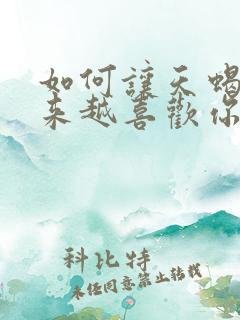 如何讓天蝎
來越喜歡你
科比特
未经同意禁止转载